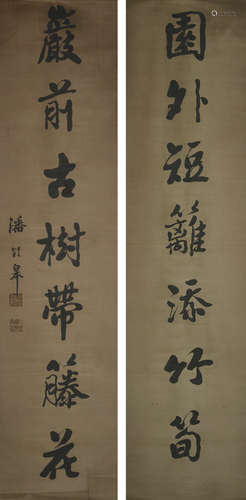 園外短籬添竹筍
巖前古樹帶籐花
潘龄皋